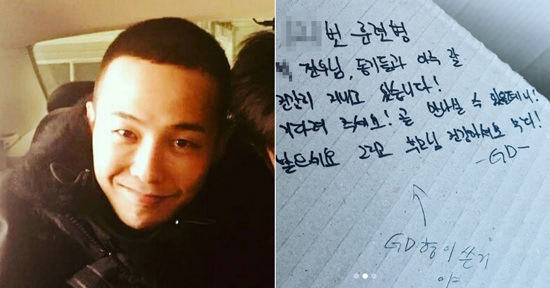 번 훈련병
전우님, 동기들과 아주 잘
건강히 지내고 있습니다!
기다려 주세요! 곧 만나실 수 있을테니!
그리고 부모님 건강하세요 꼭!
-GD-
GD형이 쓴거
야